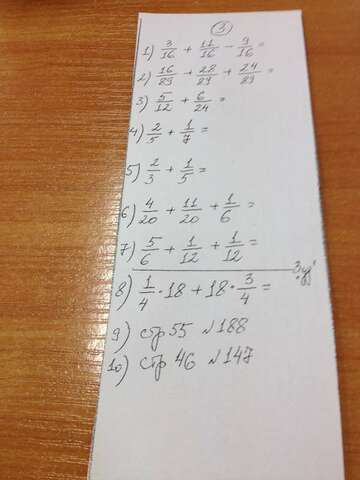 3
1) 3/16 + 11/16 - 9/16 =
2) 16/89 + 28/89 + 24/89 =
3) 5/12 + 6/24 =
4) 2/5 + 1/7 =
5) 2/3 + 1/5 =
6) 4/20 + 11/20 + 1/6 =
7) 5/6 + 1/12 + 1/12 =
8) 1/4 · 18 + 18 · 3/4 =
9) стр 55 №188
10) стр 46 №147